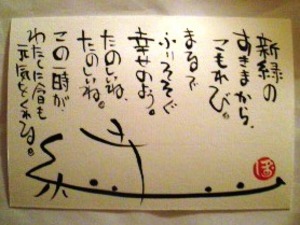 新緑の
すきまから、
こもれび。
まるで
ふりそそぐ
幸せのよう。
たのしいね、
たのしいね。
この一時が、
わたしに今日も
元気をくれる。
ぽ